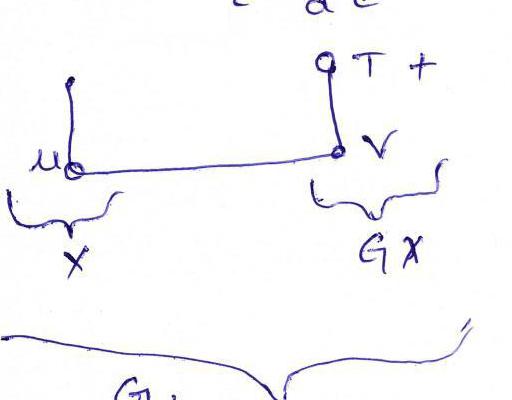 T +
u v
X GX
G